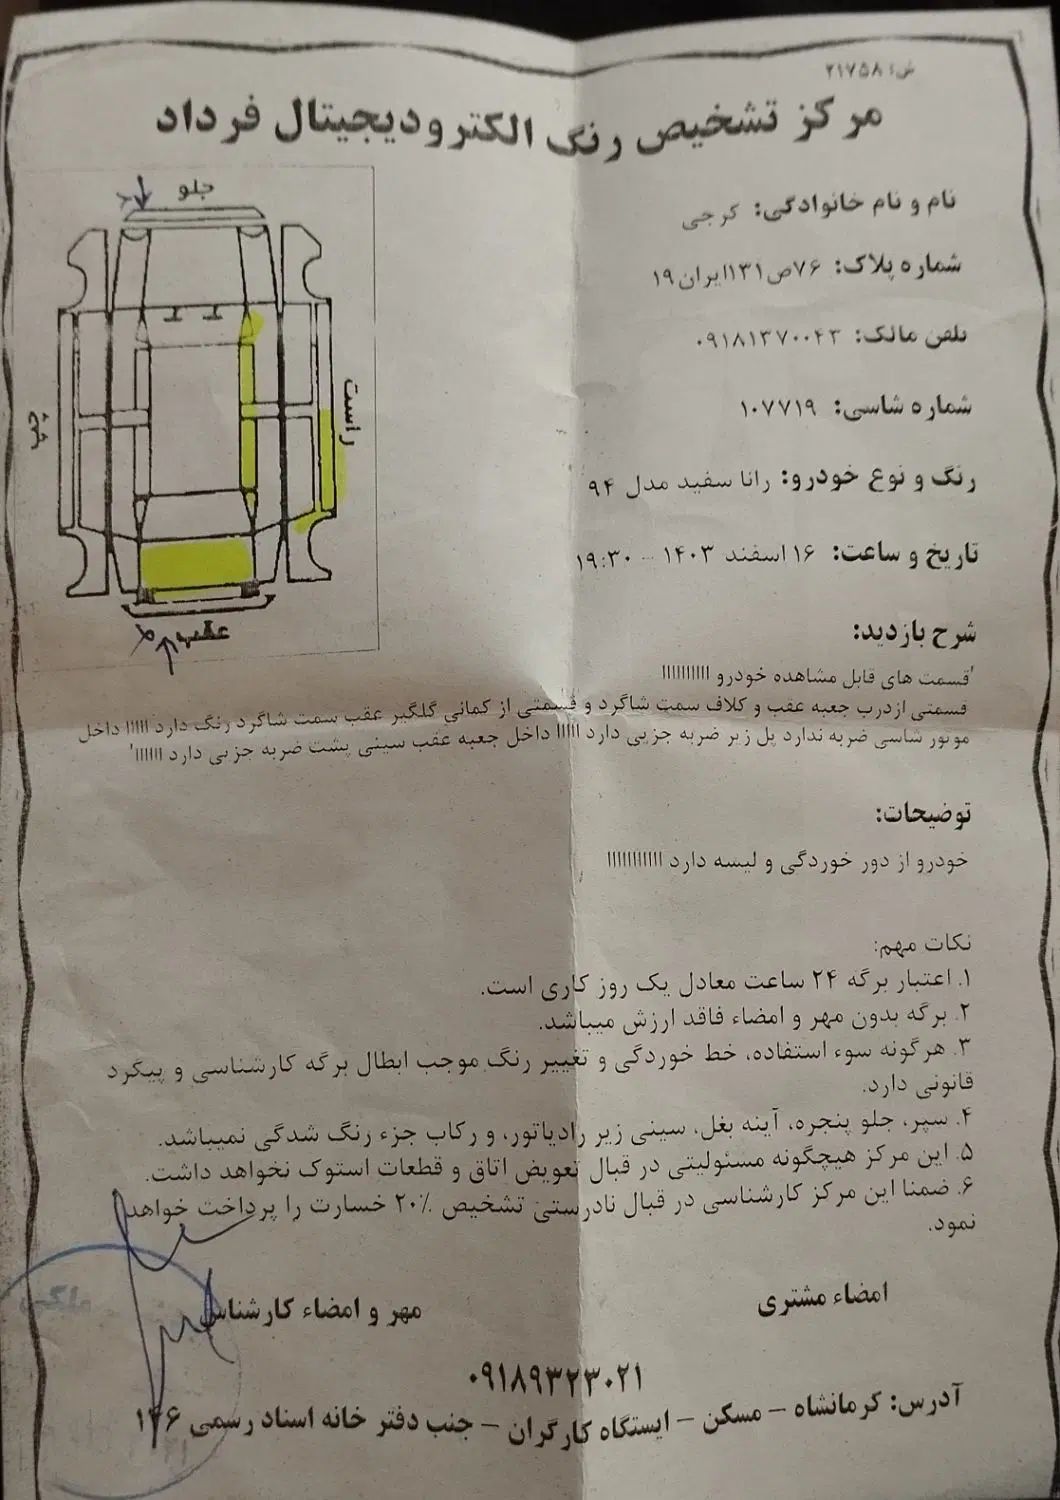 ش: ۲۱۷۵۸
مرکز تشخیص رنگ الکترودیجیتال فرداد
نام و نام خانوادگی: کرجی
شماره پلاک: ۷۶ص۱۳۱ایران۱۹
تلفن مالک: ۰۹۱۸۱۳۷۰۰۴۳
شماره شاسی: ۱۰۷۷۱۹
رنگ و نوع خودرو: رانا سفید مدل ۹۴
تاریخ و ساعت: ۱۶ اسفند ۱۴۰۳ -- ۱۹:۳۰
جلو
راست
چپ
عقب
شرح بازدید:
'قسمت های قابل مشاهده خودرو ااااااااااا
قسمتی ازدرب جعبه عقب و کلاف سمت شاگرد و قسمتی از کمانی گلگیر عقب سمت شاگرد رنگ دارد ااااا داخل
موتور شاسی ضربه ندارد پل زیر ضربه جزیی دارد ااااا داخل جعبه عقب سینی پشت ضربه جزیی دارد اااااا'
توضیحات:
خودرو از دور خوردگی و لیسه دارد اااااااااااا
نکات مهم:
۱. اعتبار برگه ۲۴ ساعت معادل یک روز کاری است.
۲. برگه بدون مهر و امضاء فاقد ارزش میباشد.
۳. هرگونه سوء استفاده، خط خوردگی و تغییر رنگ موجب ابطال برگه کارشناسی و پیگرد
قانونی دارد.
۴. سپر، جلو پنجره، آینه بغل، سینی زیر رادیاتور، و رکاب جزء رنگ شدگی نمیباشد.
۵. این مرکز هیچگونه مسئولیتی در قبال تعویض اتاق و قطعات استوک نخواهد داشت.
۶. ضمنا این مرکز کارشناسی در قبال نادرستی تشخیص ۲۰٪ خسارت را پرداخت خواهد
نمود.
امضاء مشتری
مهر و امضاء کارشناس
۰۹۱۸۹۳۲۳۰۲۱
آدرس: کرمانشاه - مسکن - ایستگاه کارگران - جنب دفتر خانه اسناد رسمی ۱۴۶